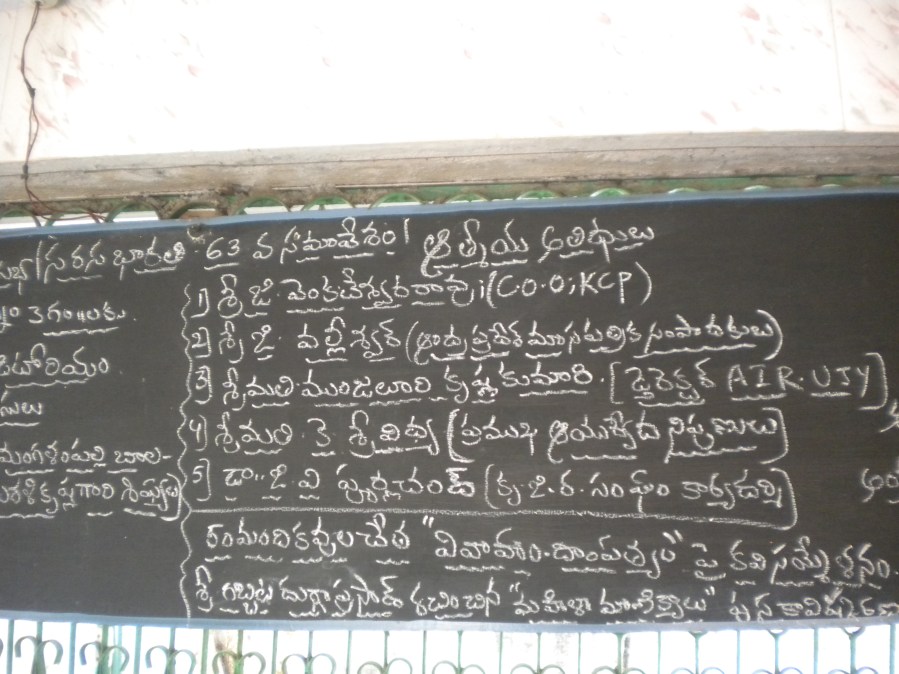 సరస భారతి 63 వ సమావేశం! ఆత్మీయ అతిథులు
1) శ్రీ జి. వెంకటేశ్వరరావు (C.O.O; KCP)
2) శ్రీ జి. వల్లీశ్వర్ (ఆంధ్రప్రదేశ్ మాసపత్రిక సంపాదకులు)
3) శ్రీమతి ముంజులూరి కృష్ణకుమారి. [డైరెక్టర్ AIR. VJY]
4) శ్రీమతి. కె. శ్రీవిద్య (ప్రముఖ ఆయుర్వేద నిపుణులు)
5) డా.. జి. వి పూర్ణచంద్ (కృ.జి.ర. సంఘం కార్యదర్శి)
కవుల చేత "వివాహం-దాంపత్యం" పై కవి సమ్మేళనం.
శ్రీ గబ్బిట దుర్గాప్రసాద్ రచించిన "మహిళా మాణిక్యాలు" పుస్తకావిష్కరణ
3 గం॥లకు
డిటోరియం
మంగళంపల్లి బాల-
గారి శిష్యులు)